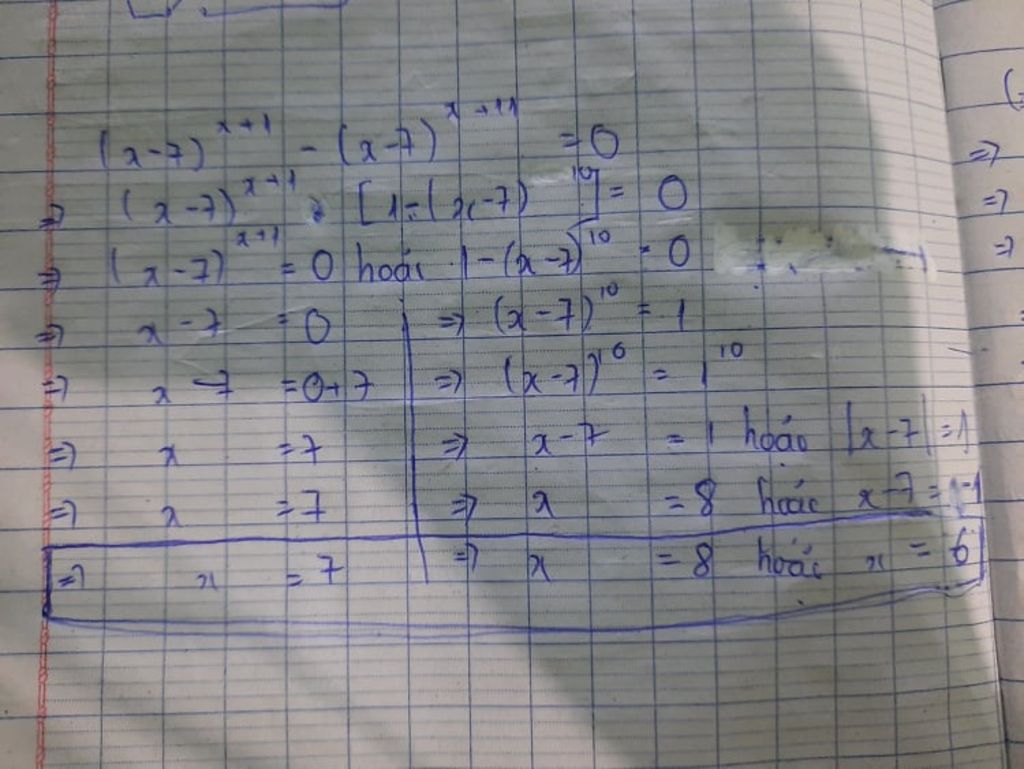 (x-7)^{x+1} - (x-7)^{x+11} = 0
=> (x-7)^{x+1} . [1-(x-7)^{10}] = 0
=> (x-7)^{x+1} = 0 hoặc 1-(x-7)^{10} = 0
=> x-7 = 0 | => (x-7)^{10} = 1
=> x-7 = 0+7 | => (x-7)^{10} = 1^{10}
=> x = 7 | => x-7 = 1 hoặc |x-7| = 1
=> x = 7 | => x = 8 hoặc x-7 = -1
=> x = 7 | => x = 8 hoặc x = 6
(
=>
=>
=>